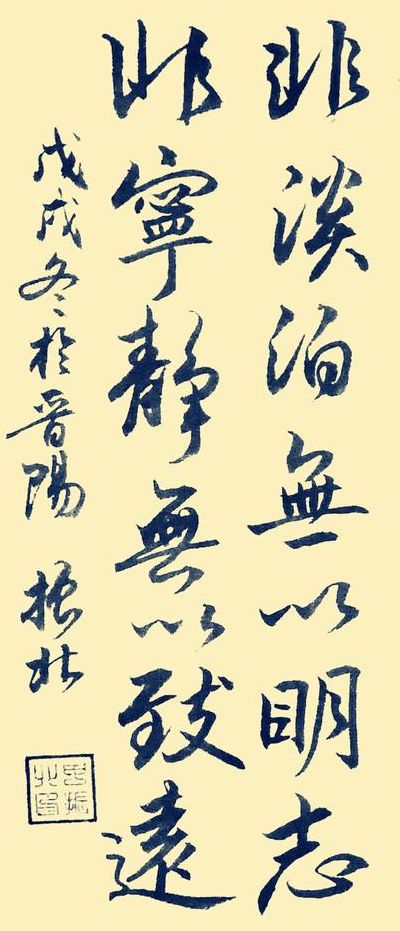 非淡泊無以明志
非寧靜無以致遠
戊戌冬於晋陽 振北